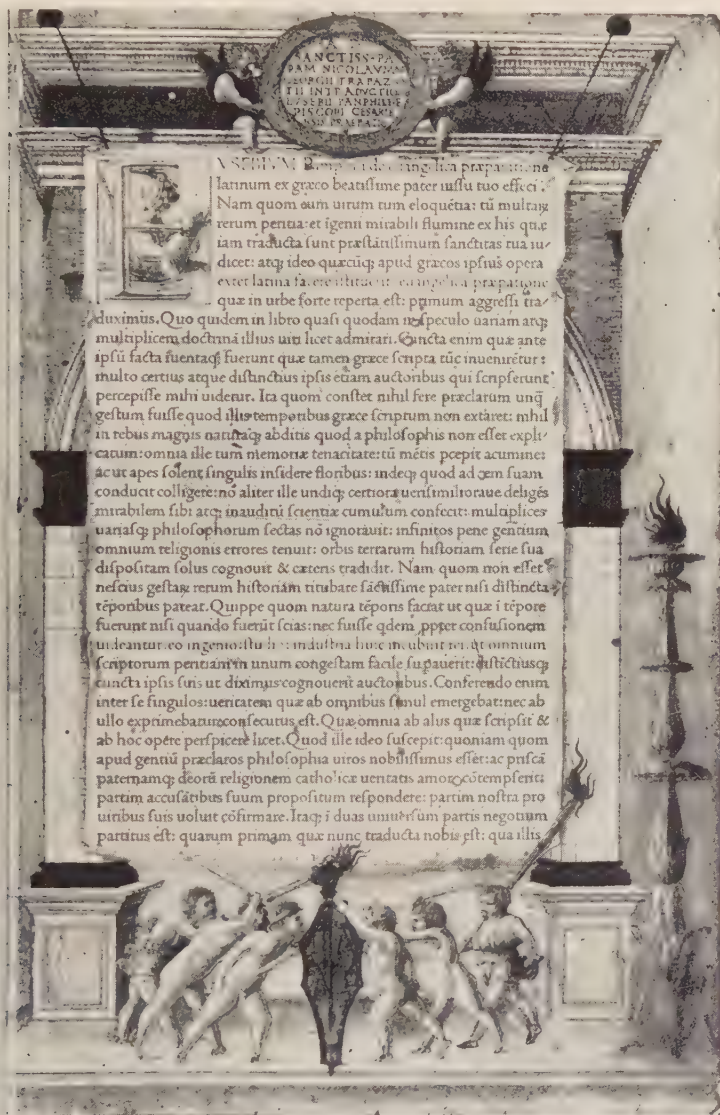 SANCTISS·PA
PAM NICOLAVM
GEORGII TRAPAZ
TII INTRADVCTIO
EVSEBII PAMPHILI
EPISCOPI CESARI
ENSIS PRAEPA
EVSEBIVM
latinum ex græco beatissime pater iussu tuo effeci.
Nam quom eum uirum tum eloquẽtia: tũ multaꝝ
rerum peritia: et ĩgenii mirabili flumine ex his quæ
iam traducta sunt præstãtissimum sanctitas tua iu-
dicet: atq; ideo quæcũq; apud græcos ipsius opera
extet latina facere istituerit: euangelica præpatione
quæ in urbe forte reperta est: primum aggressi tra
duximus. Quo quidem in libro quasi quodam in speculo uariam atq;
multiplicem doctrinã illius uiri licet admirari. Cuncta enim quæ ante
ipsũ facta iuentaq; fuerunt quæ tamen græce scripta tũc inuenirẽtur:
multo certius atque distinctius ipsis etiam auctoribus qui scripserunt
percepisse mihi uidetur. Ita quom constet nihil fere præclarum unq̃
gestum fuisse quod illis temporibus græce scriptum non extaret: nihil
in rebus magnis naturaq; abditis quod a philosophis non esset expli-
catum: omnia ille tum memoriæ tenacitate: tũ mẽtis pcepit acumine:
ac ut apes solent singulis insidere floribus: indeq; quod ad rem suam
conducit colligere: nõ aliter ille undiq; certiora uerisimilioraue deligẽs
mirabilem sibi atq; inauditũ scientiæ cumulum confecit: multiplices
uariasq; philosophorum sectas nõ ignorauit: infinitos pene gentium
omnium religionis errores tenuit: orbis terrarum historiam serie sua
dispositam solus cognouit & cæteris tradidit. Nam quom non esset
nescius gestaꝝ rerum historiam titubare sãctissime pater nisi distincta
tẽporibus pateat. Quippe quom natura tẽporis faciat ut quæ ĩ tẽpore
fuerunt nisi quando fuerũt scias: nec fuisse qdem ppter confusionem
uideantur: eo ingenio: studio: industria huic incubuit rei: ut omnium
scriptorum peritiam in unum congestam facile supauerit: distictiusq;
cuncta ipsis suis ut diximus cognouerit auctoribus. Conferendo enim
inter se singulos: ueritatem quæ ab omnibus simul emergebat: nec ab
ullo exprimebatur: consecutus est. Quæ omnia ab aliis quæ scripsit &
ab hoc opere perspicere licet. Quod ille ideo suscepit: quoniam quom
apud gentiũ præclaros philosophia uiros nobilissimus esset: ac priscã
paternamq; deorũ religionem catholicæ ueritatis amore cõtempserit:
partim accusãtibus suum propositum respondere: partim nostra pro
uiribus suis uoluit cõfirmare. Itaq; ĩ duas uniuersum partis negotium
partitus est: quarum primam quæ nunc traducta nobis est: qua illis